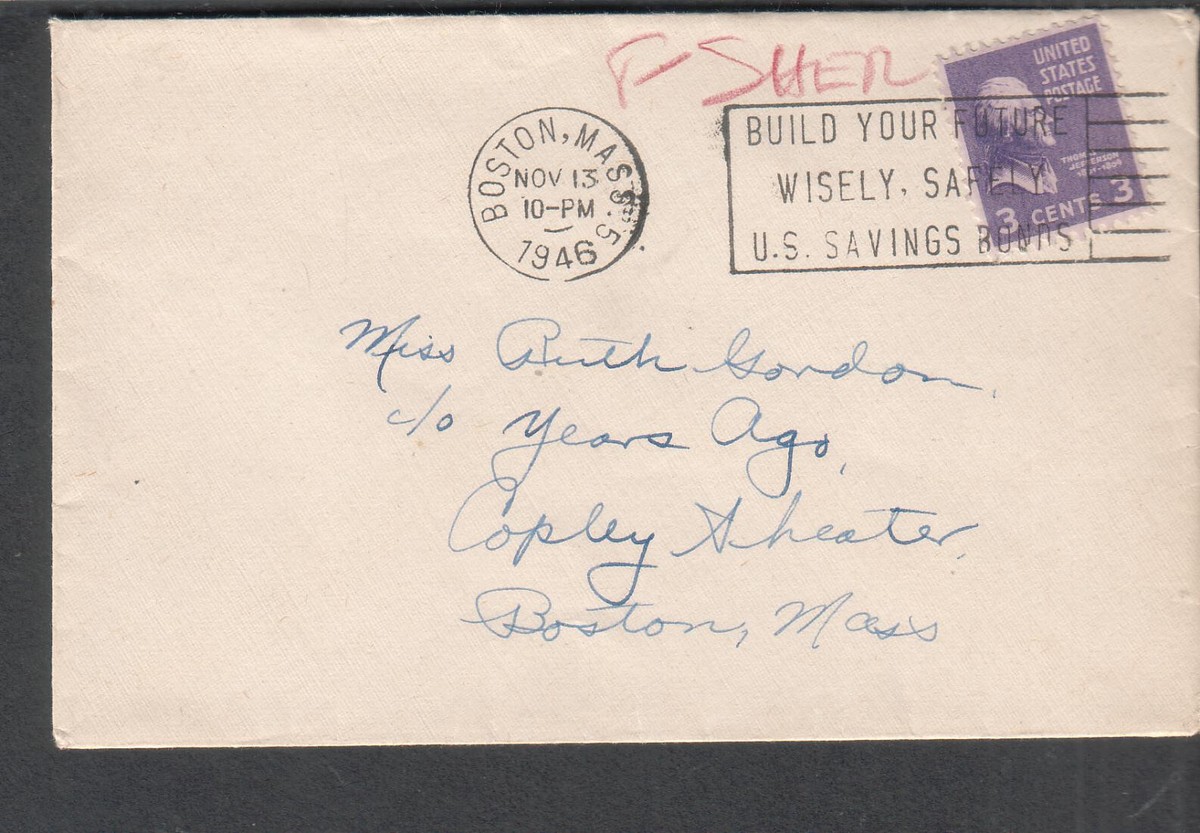 F SHER
UNITED
STATES
POSTAGE
THOMAS
JEFFERSON
3 CENTS 3
BOSTON, MASS. 5
NOV 13
10-PM
1946
BUILD YOUR FUTURE
WISELY, SAFELY
U.S. SAVINGS BONDS
Miss Ruth Gordon,
c/o Years Ago,
Copley Theater,
Boston, Mass